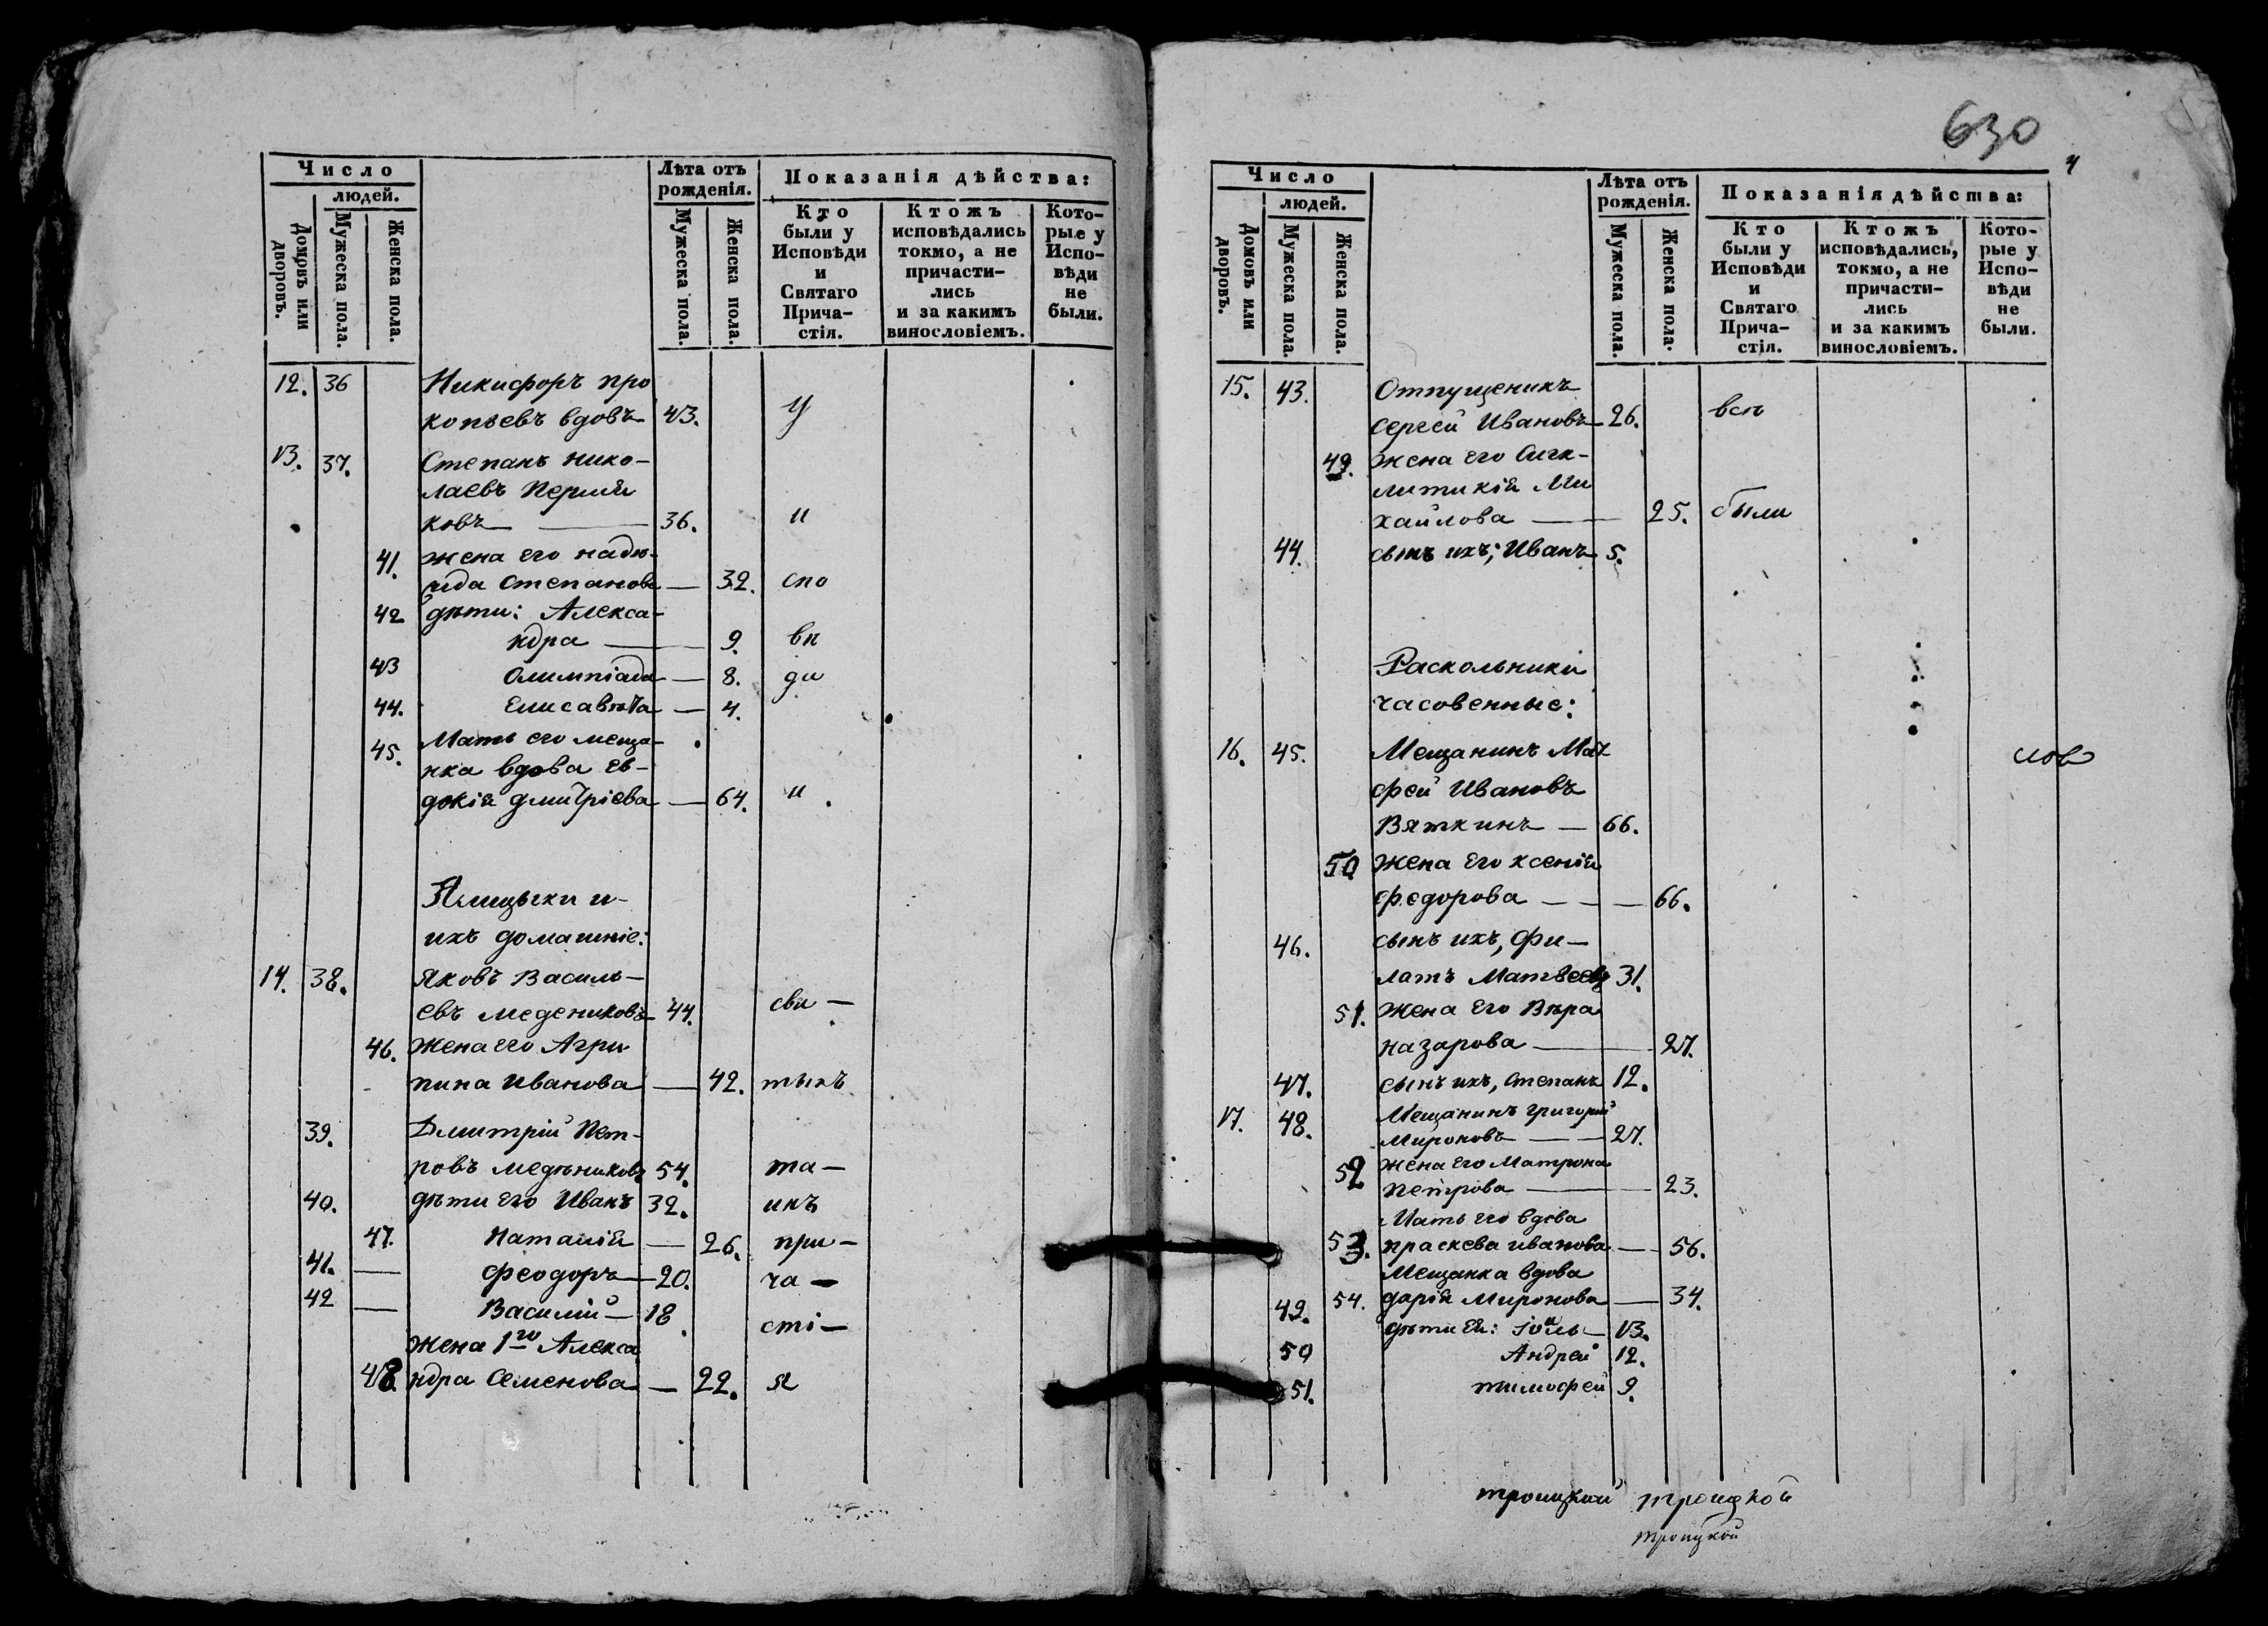 Число
людей.
Домовъ или дворовъ.
Мужеска пола.
Женска пола.
Лѣта отъ рожденія.
Мужеска пола.
Женска пола.
Показанія дѣйства:
Кто были у Исповѣди и Святаго Прича-стія.
Ктожъ исповѣдались токмо, а не причасти-лись и за какимъ винословіемъ.
Кото-рые у Испо-вѣди не были.
12. 36 Никифоръ про
копьевъ вдовъ 43. у
13. 37. Степанъ нико-
лаевъ Пермя
ковъ — 36. и
41. жена его надѣ-
жда Степанова — 32. спо
42 дѣти: Алекса-
ндра — 9. вѣ
43 Олимпіада — 8. ди
44. Елисавета — 4.
45. Мать его меща-
нка вдова ев-
докія дмитріева — 64. и
Ямщыки и
ихъ домашніе:
14. 38. Яковъ Василь-
евъ медениковъ 44. свя —
46. жена его Агри
пина Иванова — 42. тыхъ
39. Дмитрій Пет-
ровъ медѣниковъ 54. та —
40. дѣти его Иванъ 32. инъ
47. Наталія — 26. при —
41. — Феодоръ 20. ча —
42 — Василій — 18. сті —
жена 1го Алекса
48. ндра Семенова — 22. я
630
4
Число
людей.
Домовъ или дворовъ.
Мужеска пола.
Женска пола.
Лѣта отъ рожденія.
Мужеска пола.
Женска пола.
Показанія дѣйства:
Кто были у Исповѣди и Святаго Прича-стія.
Ктожъ исповѣдались, токмо, а не причасти-лись и за какимъ винословіемъ.
Кото-рые у Испо-вѣди не были.
15. 43. Отпущеникъ
Сергей Ивановъ 26. всѣ
49. жена его Сигк-
литикія Ми
хайлова — 25. были
44. сынъ ихъ; Иванъ 5.
Раскольники
часовенные:
16. 45. Мещанинъ Мат
фей Ивановъ
Вяткинъ — 66.
50 жена его ксенія
федорова — 66.
46. сынъ ихъ, Фи —
латъ Матвеевъ 31.
51. жена его Вѣра
назарова — 27.
47. сынъ ихъ, Степанъ 12.
17. 48. Мещанинъ григорий
Мироновъ — 27.
52 жена его Матрона
петрова — 23.
Мать его вдова
53. праскева иванова — 56.
Мещанка вдова
54. дарія Миронова — 34.
49. дѣти ея: Іоиль — 13.
50 Андрей 12.
51. тимофей 9.
троицкой троицкой
троицкой